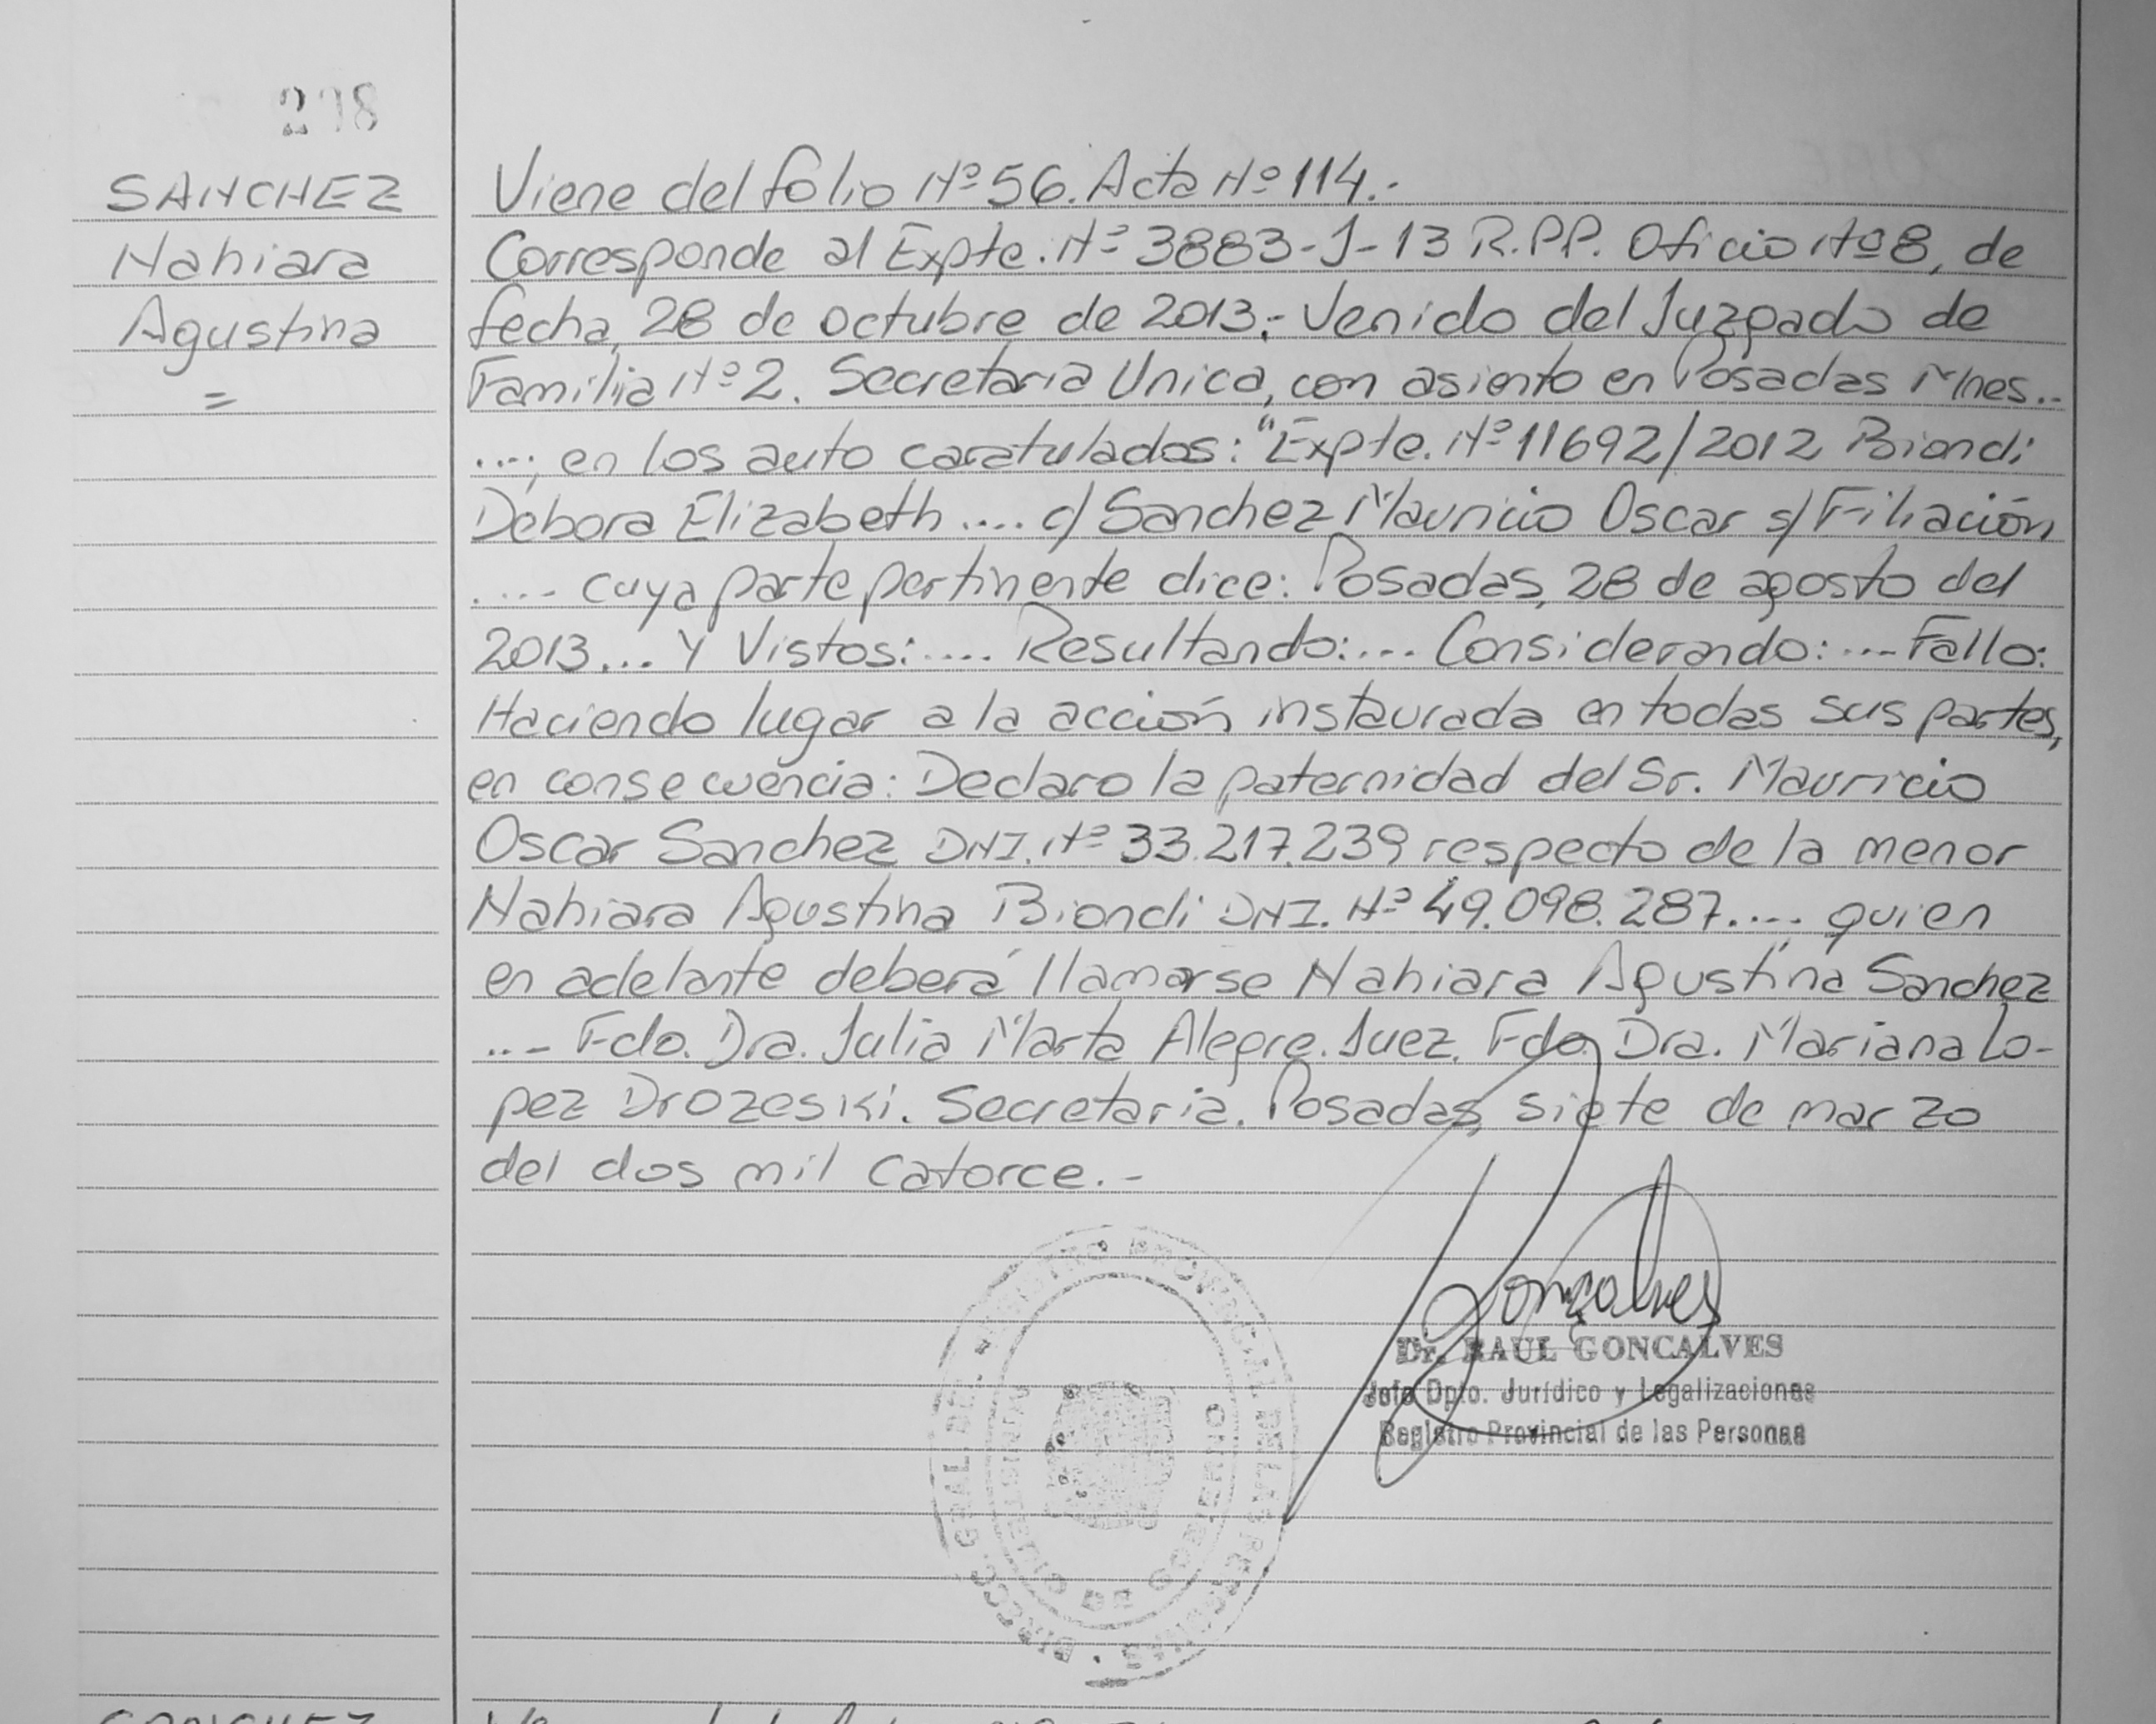 SANCHEZ
Nahiara
Agustina
=
Viene del folio Nº 56. Acta Nº 114.-
Corresponde al Expte. Nº 3883-J-13 R.P.P. Oficio Nº 8, de
fecha, 28 de octubre de 2013.- Venido del Juzgado de
Familia Nº 2. Secretaria Unica, con asiento en Posadas Mnes..
...., en los auto caratulados: "Expte. Nº 11692/2012 Biondi
Debora Elizabeth .... c/ Sanchez Mauricio Oscar s/ Filiación
.... cuya parte pertinente dice: Posadas, 28 de agosto del
2013... Y Vistos:.... Resultando:.... Considerando:.... Fallo:
Haciendo lugar a la acción instaurada en todas sus partes,
en consecuencia: Declaro la paternidad del Sr. Mauricio
Oscar Sanchez DNI. Nº 33.217.239 respecto de la menor
Nahiara Agustina Biondi DNI. Nº 49.098.287.... quien
en adelante deberá llamarse Nahiara Agustina Sanchez"
... Fdo. Dra. Julia Marta Alegre. Juez. Fdo. Dra. Mariana Lo-
pez Drozeski. Secretaria. Posadas, siete de marzo
del dos mil catorce.-
Gonçalves
Dr. RAUL GONCALVES
Jefe Dpto. Jurídico y Legalizaciones
Registro Provincial de las Personas
DIRECC. GRAL. DEL REGISTRO PROVINCIAL DE LAS PERSONAS
MINISTERIO DE GOBIERNO